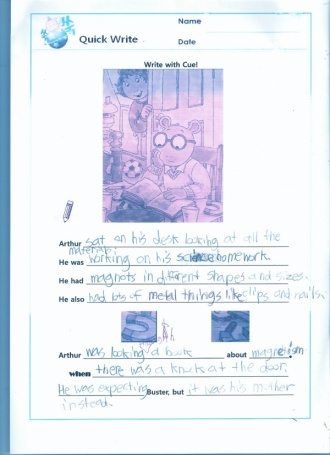 Name
Quick Write
Date
Write with Cue!
Arthur sat on his desk looking at all the
materials.
He was working on his science homework.
He had magnets in different shapes and sizes.
He also had lots of metal things like clips and nails.
Arthur was looking a book about magnetism
when there was a knock at the door.
He was expecting Buster, but it was his mother
instead.